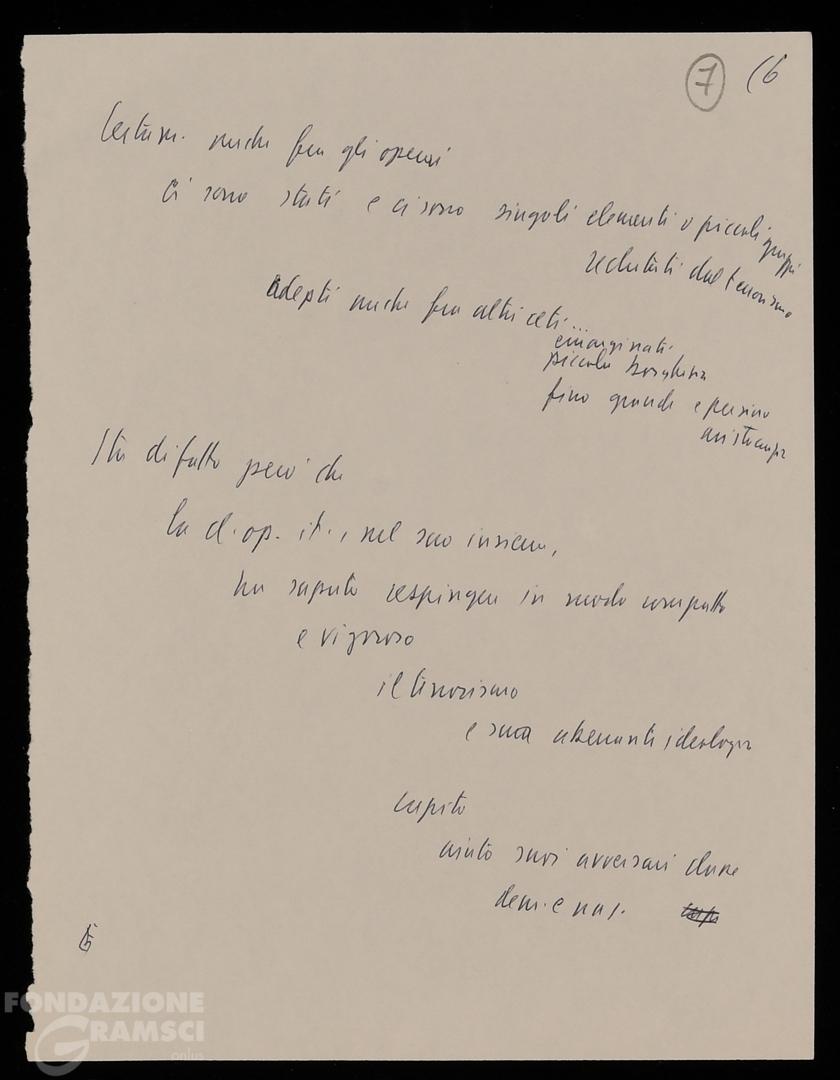 7 (6
Certam. anche fra gli operai
ci sono stati e ci sono singoli elementi o piccoli gruppi
reclutati dal terrorismo
adepti anche fra altri ceti...
emarginati
piccola borghesia
fino grande e persino
aristocrazia
Sta di fatto però che
la cl. op. it., nel suo insieme,
ha saputo respingere in modo compatto
e vigoroso
il terrorismo
e sua aberrante ideologia
capito
aiuto suoi avversari classe
dem. e naz.
FONDAZIONE
GRAMSCI
onlus